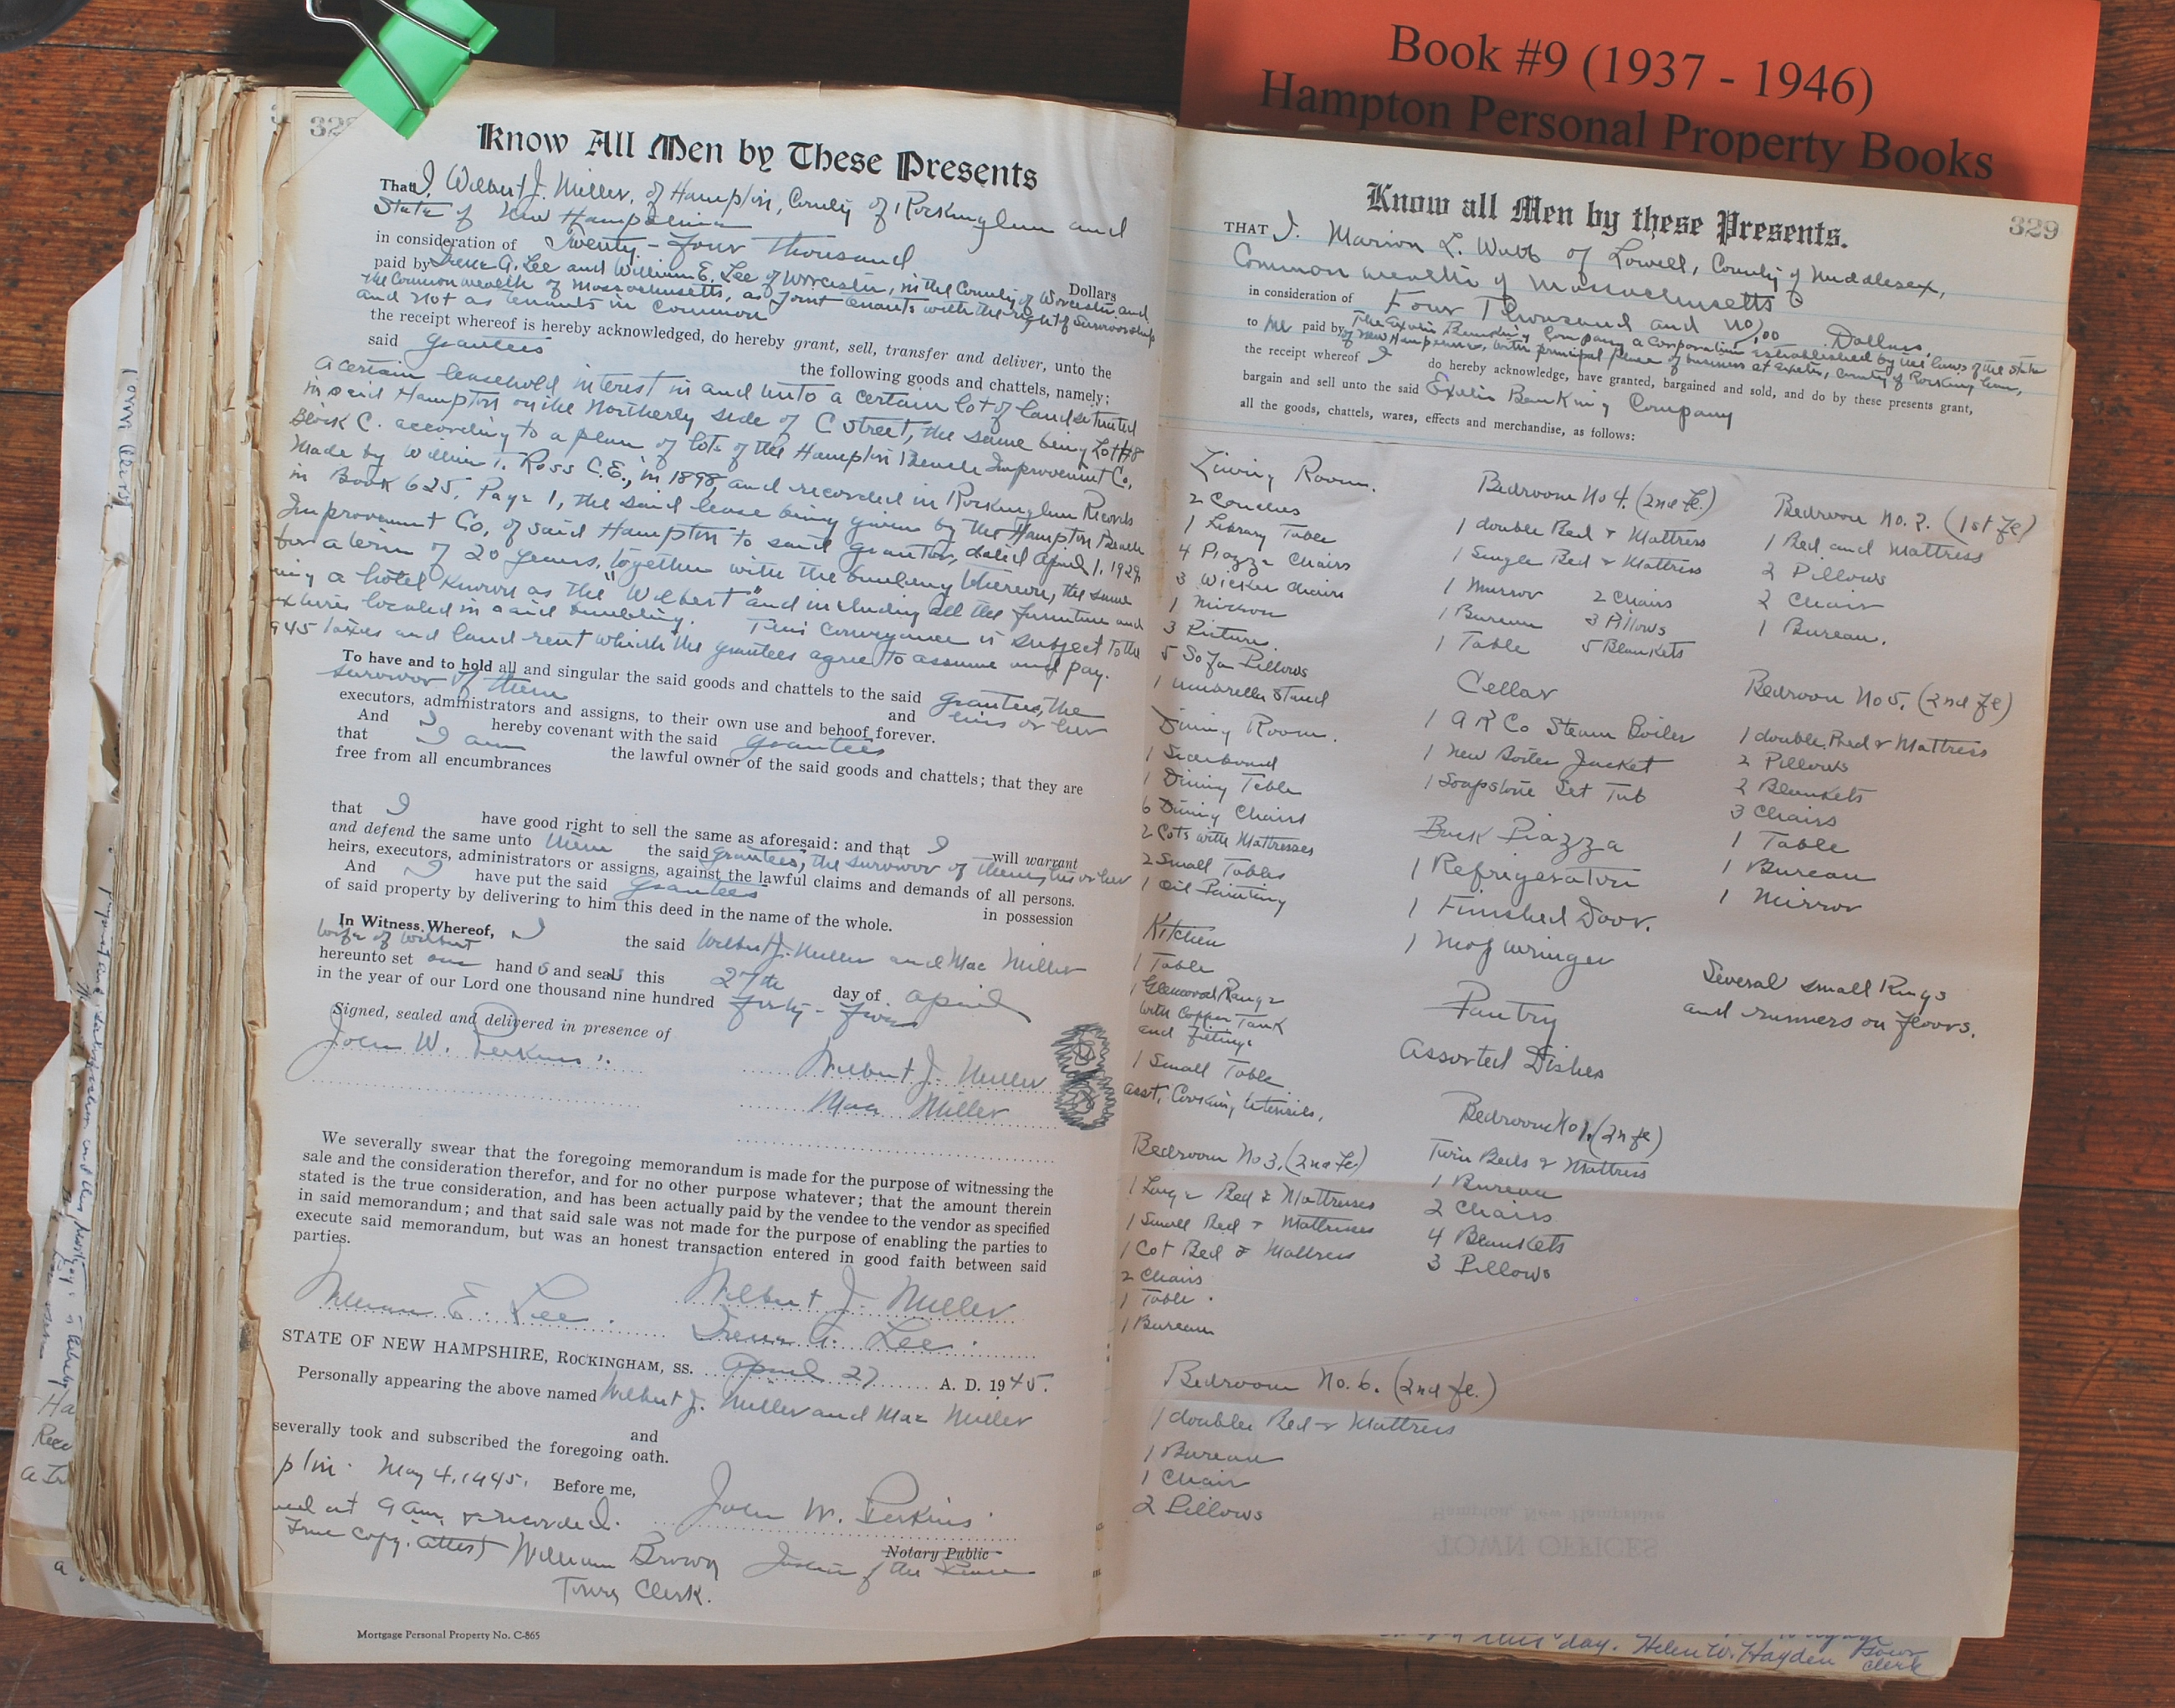 Book #9 (1937 - 1946)
Hampton Personal Property Books
Know All Men by These Presents
That I, Wilbert J. Miller, of Hampton, County of Rockingham and
State of New Hampshire
in consideration of Twenty-four thousand
Dollars
paid by Irene A. Lee and William E. Lee of Worcester, in the County of Worcester and
the Commonwealth of Massachusetts, as joint tenants with the right of survivorship
and not as tenants in common
the receipt whereof is hereby acknowledged, do hereby grant, sell, transfer and deliver, unto the
said grantees the following goods and chattels, namely;
a certain leasehold interest in and unto a certain lot of land situated
in said Hampton on the Northerly side of C Street, the same being Lot #8
Block C. according to a plan of lots of the Hampton Beach Improvement Co,
made by William T. Ross C.E., in 1898, and recorded in Rockingham Records
in Book 625, Page 1, the said lease being given by the Hampton Beach
Improvement Co, of said Hampton to said grantor, dated April 1, 1929,
for a term of 20 years, together with the building thereon, the same
a hotel known as the "Wilbert" and including all the furniture and
located in said building. This conveyance is subject to the
945 taxes and land rent which the grantees agree to assume and pay.
To have and to hold all and singular the said goods and chattels to the said grantees, the
survivor of them and his or her
executors, administrators and assigns, to their own use and behoof forever.
And I hereby covenant with the said grantees
that I am the lawful owner of the said goods and chattels; that they are
free from all encumbrances
that I have good right to sell the same as aforesaid: and that I will warrant
and defend the same unto them the said grantees, the survivor of them, his or her
heirs, executors, administrators or assigns, against the lawful claims and demands of all persons.
And I have put the said grantees in possession
of said property by delivering to him this deed in the name of the whole.
In Witness Whereof, I the said Wilbert J. Miller and Mae Miller
wife of Wilbert
hereunto set our hands and seals this 27th day of April
in the year of our Lord one thousand nine hundred forty-five
Signed, sealed and delivered in presence of
John W. Perkins
Wilbert J. Miller
Mae Miller
We severally swear that the foregoing memorandum is made for the purpose of witnessing the
sale and the consideration therefor, and for no other purpose whatever; that the amount therein
stated is the true consideration, and has been actually paid by the vendee to the vendor as specified
in said memorandum; and that said sale was not made for the purpose of enabling the parties to
execute said memorandum, but was an honest transaction entered in good faith between said
parties.
William E. Lee Wilbert J. Miller
Irene A. Lee
STATE OF NEW HAMPSHIRE, ROCKINGHAM, SS. April 27 A. D. 1945.
Personally appearing the above named Wilbert J. Miller and Mae Miller
and
severally took and subscribed the foregoing oath.
May 4, 1945. Before me,
at 9 am & recorded. John W. Perkins
True copy: attest William Brown Notary Public
Justice of the Peace
Town Clerk.
Mortgage Personal Property No. C-865
329
Know all Men by these Presents.
THAT I. Marion L. Webb of Lowell, County of Middlesex,
Commonwealth of Massachusetts
in consideration of Four Thousand and no/100 Dollars,
to me paid by The Exeter Banking Company a Corporation established by the laws of the State
of New Hampshire, with principal place of business at Exeter, County of Rockingham,
the receipt whereof I do hereby acknowledge, have granted, bargained and sold, and do by these presents grant,
bargain and sell unto the said Exeter Banking Company
all the goods, chattels, wares, effects and merchandise, as follows:
Living Room.
2 Couches
1 Library Table
4 Piazza Chairs
3 Wicker chairs
1 Mirror
3 Picture
5 Sofa Pillows
1 umbrella Stand
Dining Room.
1 Sideboard
1 Dining Table
6 Dining Chairs
2 Cots with Mattresses
2 Small Tables
1 Oil Painting
Kitchen
1 Table
1 Glenwood Range
with Copper Tank
and fittings
1 Small Table
asst. Cooking Utensils.
Bedroom No 3. (2nd Fl)
1 Large Bed & Mattresses
1 Small Bed & Mattresses
1 Cot Bed & Mattress
2 Chairs
1 Table
1 Bureau
Bedroom No. 6. (2nd fl.)
1 double Bed & Mattress
1 Bureau
1 Chair
2 Pillows
Bedroom No 4. (2nd Fl.)
1 double Bed & Mattress
1 Single Bed & Mattress
1 Mirror 2 Chairs
1 Bureau 3 Pillows
1 Table 5 Blankets
Cellar
1 A R Co Steam Boiler
1 New Boiler Jacket
1 Soapstone Set Tub
Back Piazza
1 Refrigerator
1 Finished Door.
1 Mop wringer
Pantry
Assorted Dishes
Bedroom No 1. (2n fl)
Twin Beds & Mattress
1 Bureau
2 Chairs
4 Blankets
3 Pillows
Bedroom No. 2. (1st Fl)
1 Bed and Mattress
2 Pillows
2 Chair
1 Bureau.
Bedroom No 5. (2nd Fl)
1 double Bed & Mattress
2 Pillows
2 Blankets
3 Chairs
1 Table
1 Bureau
1 Mirror
Several small Rugs
and runners on floors.
TOWN OFFICES
Hampton, New Hampshire
this day. Helen W. Hayden Town
Clerk